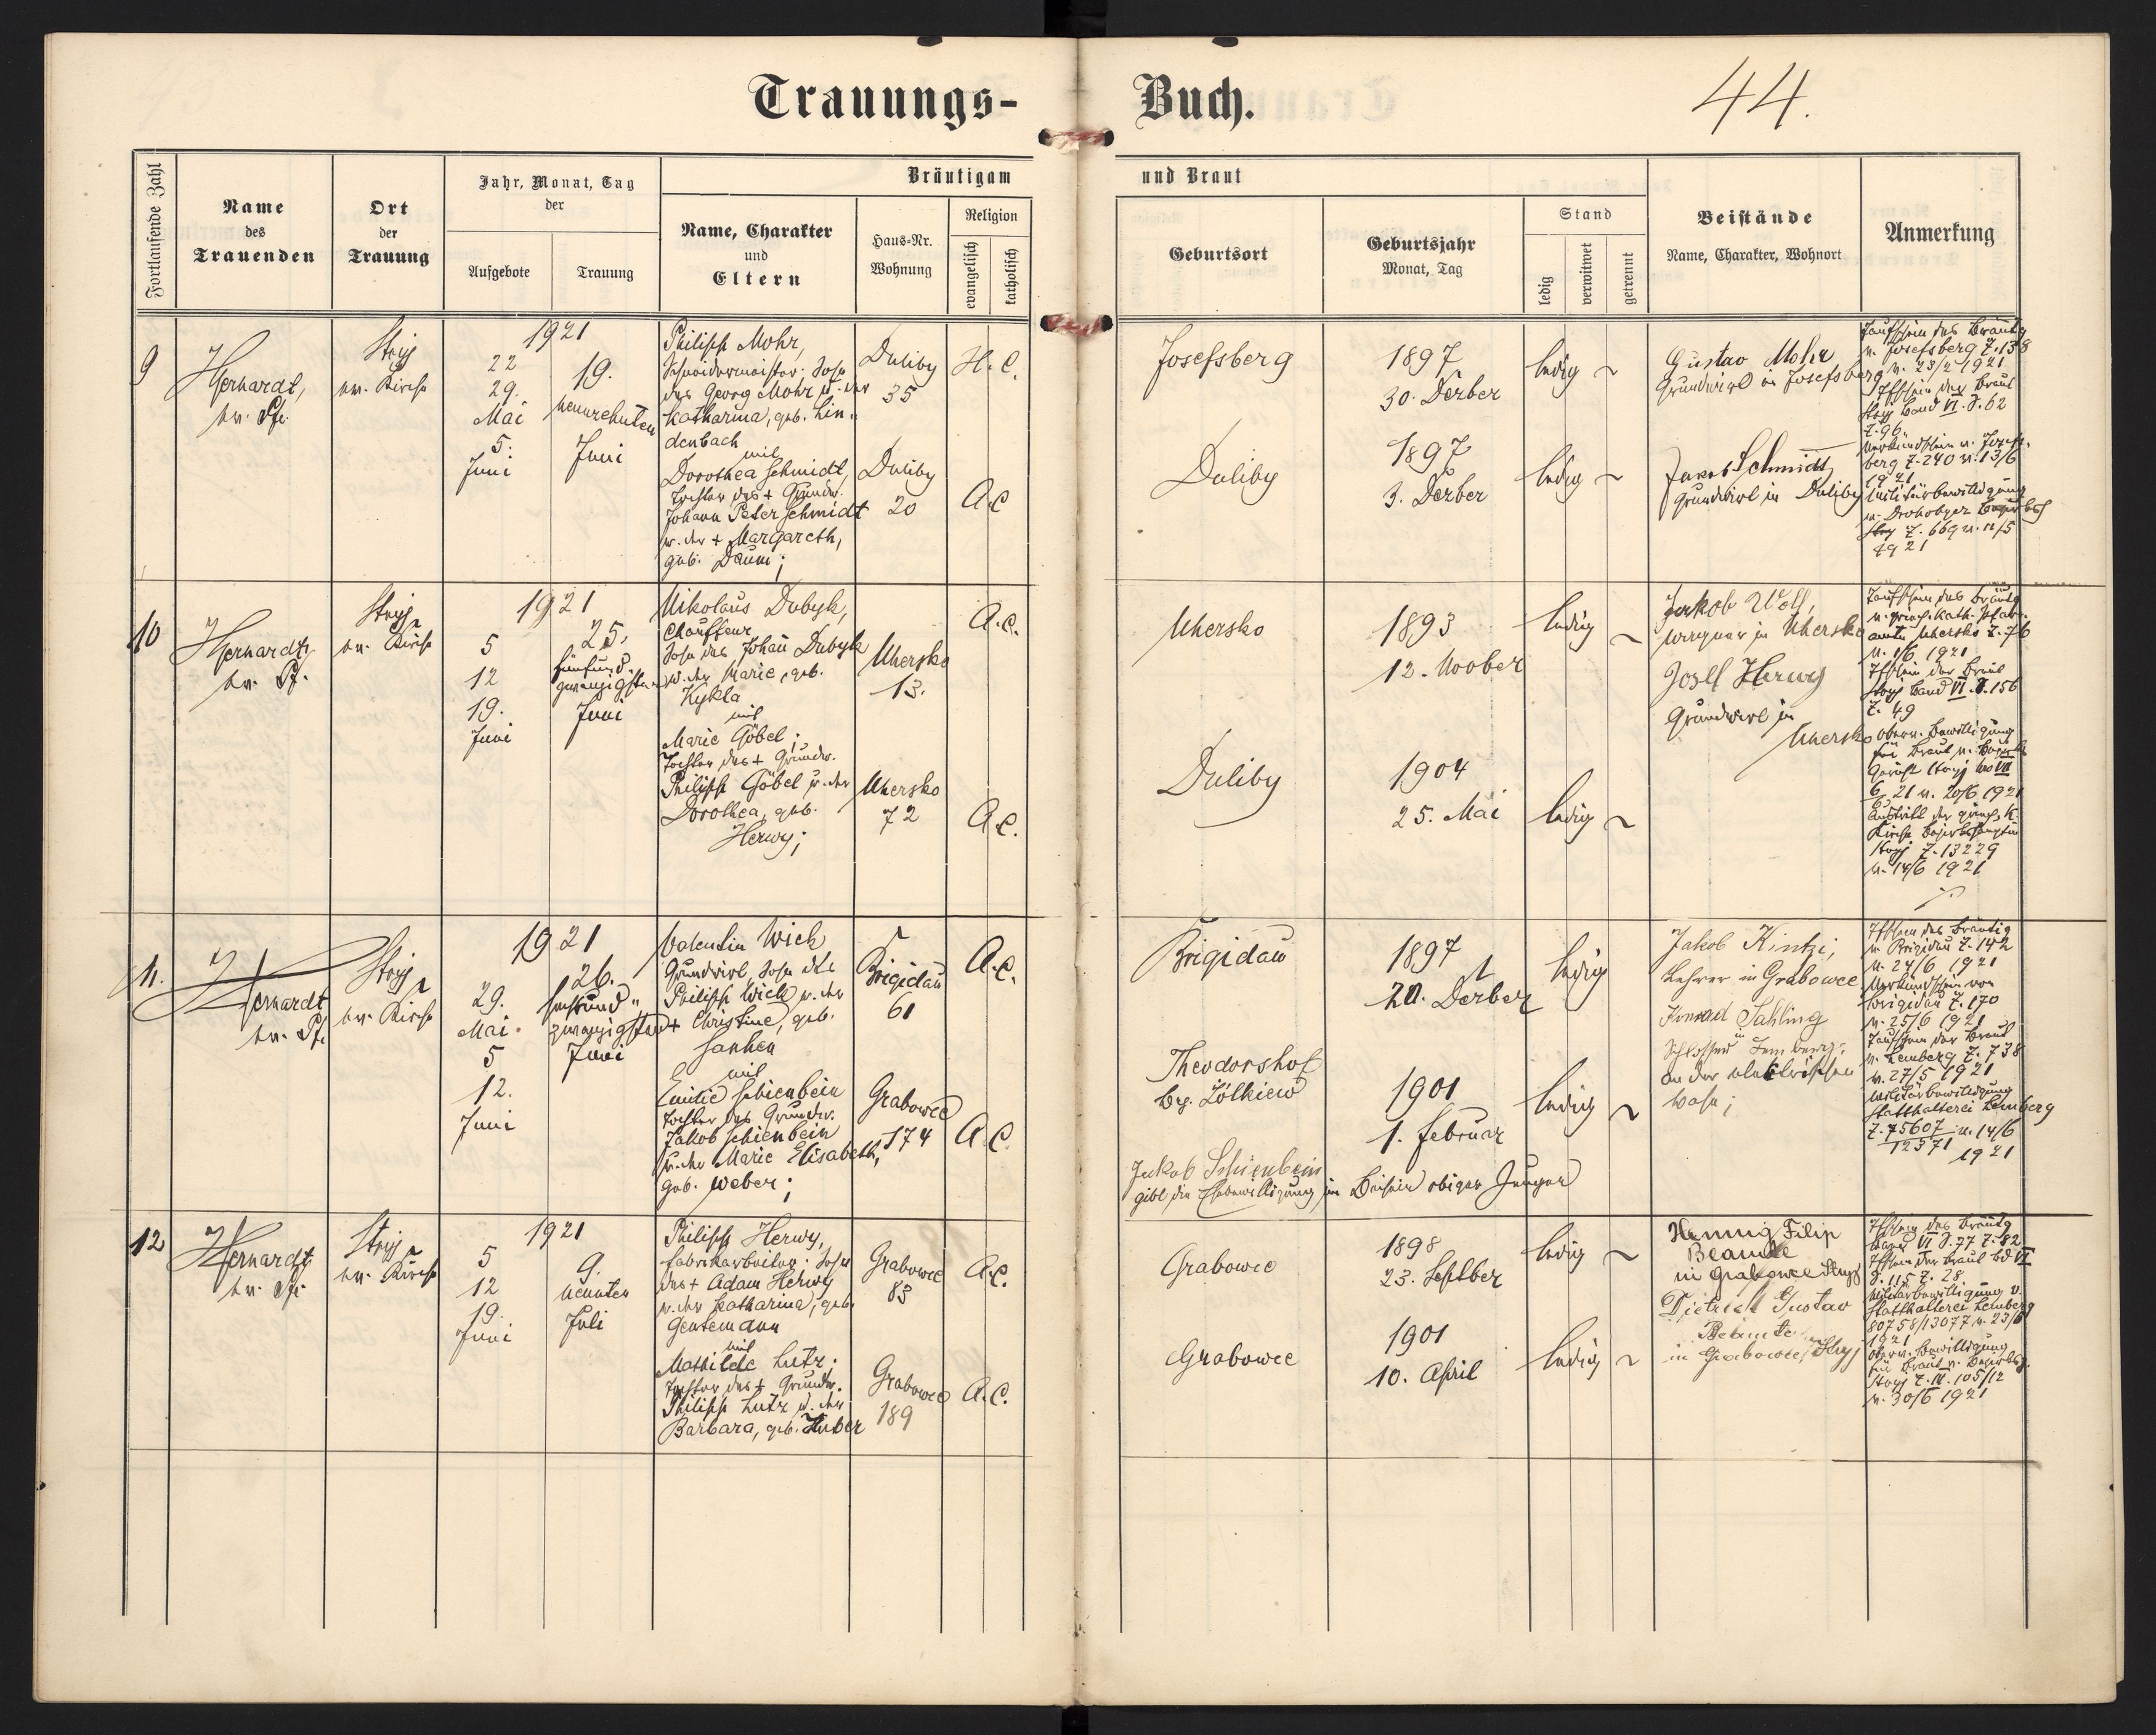 Trauungs-Buch.
44.
Fortlaufende Zahl
Name
des
Trauenden
Ort
der
Trauung
Jahr, Monat, Tag
der
Aufgebote
Trauung
Bräutigam und Braut
Name, Charakter
und
Eltern
Haus-Nr.
Wohnung
Religion
evangelisch
katholisch
Geburtsort
Geburtsjahr
Monat, Tag
Stand
ledig
verwitwet
getrennt
Beistände
Name, Charakter, Wohnort
Anmerkung
9
Stryj
ev. Kirche
1921
22
29.
Mai
5.
Juni
19.
neunzehnten
Juni
Philipp Mohr,
Schneidermeister. Sohn
des Georg Mohr u. der
Katharina, geb. Lin-
denbach
mit
Dorothea Schmidt,
Tochter des + Grundw.
Johann Peter Schmidt
u. der + Margareth,
geb. Daum;
Duliby
35
Duliby
20
H. C.
A. C
Josefsberg
Duliby
1897
30. Dezber
1897
3. Dezber
ledig
ledig
Gustav Mohr
Grundwirt in Josefsberg
Jakob Schmidt
Grundwirt in Duliby
Taufschein des Bräutg
v. Josefsberg Z. 138
v. 23/2 1921
der Braut
Stryj Band VI. S. 62
Z. 96.
berg Z. 240 v. 13/6
1921
Militärbewilligung
Z. 669 v. 11/5
1921
10
Stryj
ev. Kirche
1921
5
12
19.
Juni
25.
fünfund-
zwanzigsten
Juni
Nikolaus Dubyk,
Chauffeur
Sohn des Johan Dubyk
u. der Marie, geb.
Kykla
mit
Marie Göbel;
Tochter des + Grundw.
Philipp Göbel u. der
Dorothea, geb.
Herwy;
Uhersko
13.
Uhersko
72
A. C.
A. C.
Uhersko
Duliby
1893
12. Novber
1904
25. Mai
ledig
ledig
Jakob Woll,
in Uhersko
Grundwirt in
Uhersko
Taufschein des Bräutg
v. griech. kath. Pfarr-
amte Uhersko Z. 76
v. 1/6 1921
der Braut
Stryj Band VI. S. 156
Z. 49
Kirche
Stryj Z. 13229
v. 14/6 1921
11.
Stryj
ev. Kirche
1921
29.
Mai.
5
12.
Juni
26.
zwanzigsten
Juni
Valentin Wick
Grundwirt, Sohn des
Philipp Wick u. der
+ Christine, geb.
mit
Emilie Schienbein
Tochter des Grundw.
Jakob Schienbein
u. der Marie Elisabeth,
geb. Weber;
Brigidau
61
Grabowce
174
A. C.
A. C.
Brigidau
Theodorshof
Bez. Żółkiew
1897
1901
1. Februar
ledig
ledig
Jakob Kintzi;
Lehrer in Grabowce
an der elektrischen
Jakob Schienbein
gibt die Ehebewilligung im Beisein obiger Zeugen
des Bräutig
v. Brigidau Z. 142
v. 24/6 1921
Brigidau Z. 170
v. 25/6 1921
Taufschein der Braut
v. Lemberg Z. 738
v. 27/5 1921
Militärbewilligung
Statthalterei Lemberg
Z. 75607 v. 14/6
12571
1921
12
Stryj
ev. Kirche
1921
5
12
19.
Juni
9.
neunten
Juli
Philipp Herwy,
Fabrikarbeiter. Sohn
des + Adam Herwy
u. der Katharina, geb.
Gensemann
mit
Mathilde Lutz;
Tochter des + Grundw.
Philipp Lutz u. der
Barbara, geb. Huber
Grabowce
83
Grabowce
189
A. C.
A. C.
Grabowce
Grabowce
1898
23. Septber
1901
10. April
ledig
ledig
Hennig Filip
Beamte
in Grabowce Stryj
Dietrich Gustav
Beamte
in Grabowce, Stryj
des Bräutg
Band VI S. 77 Z. 82
der Braut Bd VI
S. 115 Z. 28
Militärbewilligung v.
Statthalterei Lemberg
80758/13077 v. 23/6
1921
v. 30/6 1921